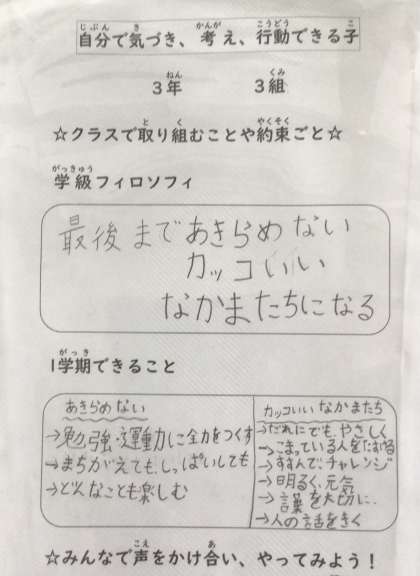 自分で気づき、考え、行動できる子
3年 3組
☆クラスで取り組むことや約束ごと☆
学級フィロソフィ
最後まであきらめない
カッコいい
なかまたちになる
1学期できること
あきらめない
→勉強・運動力に全力をつくす
→まちがえても、しっぱいしても
→どんなことも楽しむ
カッコいいなかまたち
→だれにでもやさしく
→こまっている人をたすける
→すすんで、チャレンジ
→明るく、元気
→言葉を大切に、
→人の話をきく
☆みんなで声をかけ合い、やってみよう!